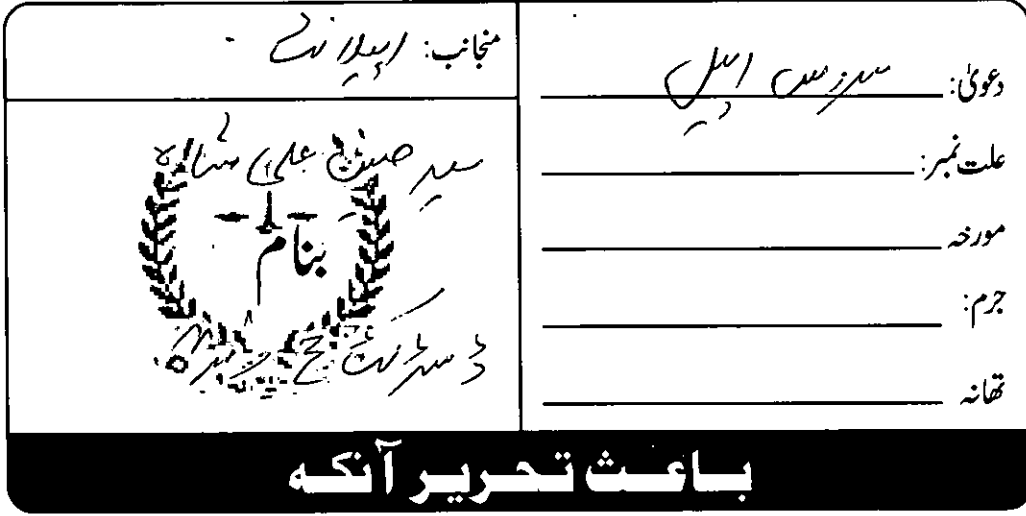 دعویٰ: سروس اپیل
علت نمبر:
مورخہ
جرم:
تھانہ
منجانب: اپیلانٹ
سید حسن علی شاہ
بنام
ڈسٹرکٹ جج
باعث تحریر آنکہ